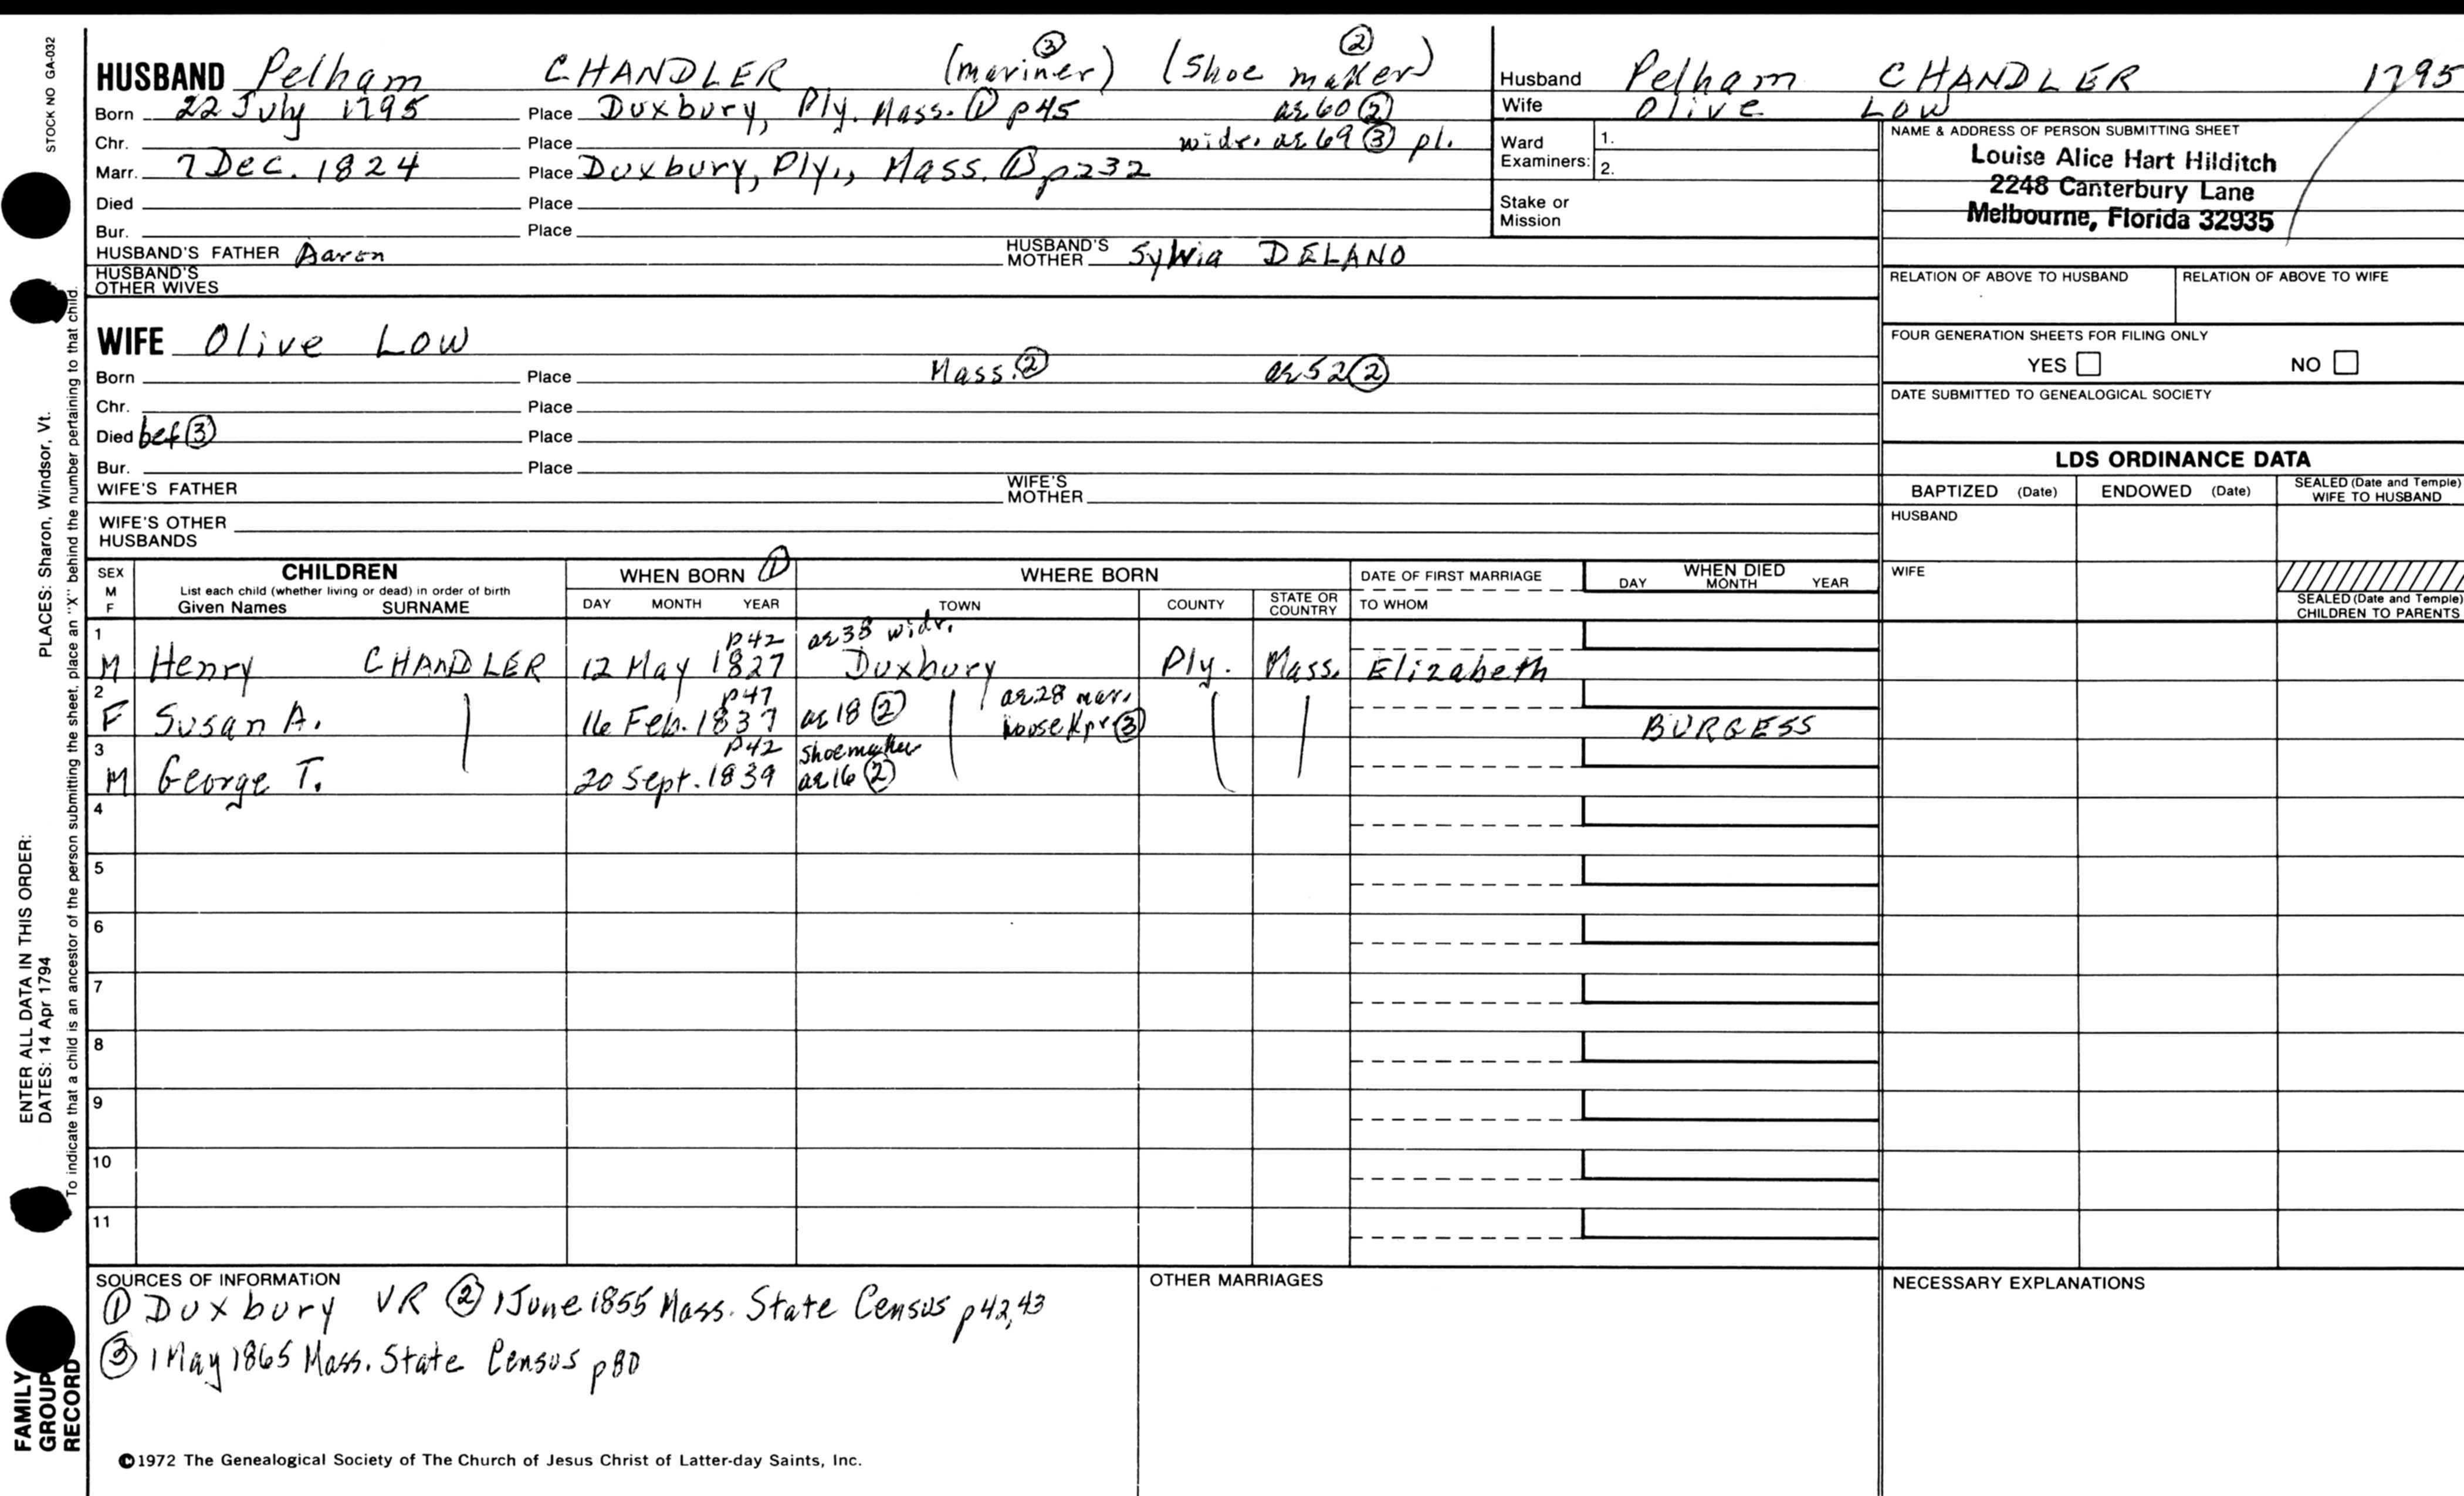 STOCK NO GA-032
HUSBAND Pelham CHANDLER (mariner) ③ (Shoe maker) ②
Born 22 July 1795 Place Duxbury, Ply. Mass. ① p45 ae 60 ②
Chr. Place widr. ae 69 ③ pl.
Marr. 7 Dec. 1824 Place Duxbury, Ply., Mass. ① p232
Died Place
Bur. Place
HUSBAND'S FATHER Aaron HUSBAND'S MOTHER Sylvia DELANO
HUSBAND'S OTHER WIVES
WIFE Olive LOW
Born Place Mass. ② ae 52 ②
Chr. Place
Died bef ③ Place
Bur. Place
WIFE'S FATHER WIFE'S MOTHER
WIFE'S OTHER HUSBANDS
Husband Pelham CHANDLER 1795
Wife Olive LOW
Ward Examiners: 1.
2.
Stake or Mission
NAME & ADDRESS OF PERSON SUBMITTING SHEET
Louise Alice Hart Hilditch
2248 Canterbury Lane
Melbourne, Florida 32935
RELATION OF ABOVE TO HUSBAND RELATION OF ABOVE TO WIFE
FOUR GENERATION SHEETS FOR FILING ONLY
YES NO
DATE SUBMITTED TO GENEALOGICAL SOCIETY
LDS ORDINANCE DATA
BAPTIZED (Date) ENDOWED (Date) SEALED (Date and Temple) WIFE TO HUSBAND
HUSBAND
WIFE
SEALED (Date and Temple) CHILDREN TO PARENTS
SEX M F CHILDREN WHEN BORN ① WHERE BORN DATE OF FIRST MARRIAGE WHEN DIED
List each child (whether living or dead) in order of birth
Given Names SURNAME DAY MONTH YEAR TOWN COUNTY STATE OR COUNTRY TO WHOM DAY MONTH YEAR
1 p42 ae 38 widr.
M Henry CHANDLER 12 May 1827 Duxbury Ply. Mass. Elizabeth
2 p47 ae 28 mar.
F Susan A. 16 Feb. 1837 ae 18 ② house kpr ③ BURGESS
3 p42 shoemaker
M George T. 20 Sept. 1839 ae 16 ②
4
5
6
7
8
9
10
11
SOURCES OF INFORMATION OTHER MARRIAGES NECESSARY EXPLANATIONS
① Duxbury VR ② 1 June 1855 Mass. State Census p 42,43
③ 1 May 1865 Mass. State Census p80
©1972 The Genealogical Society of The Church of Jesus Christ of Latter-day Saints, Inc.
FAMILY GROUP RECORD
ENTER ALL DATA IN THIS ORDER:
DATES: 14 Apr 1794 PLACES: Sharon, Windsor, Vt.
To indicate that a child is an ancestor of the person submitting the sheet, place an "X" behind the number pertaining to that child.